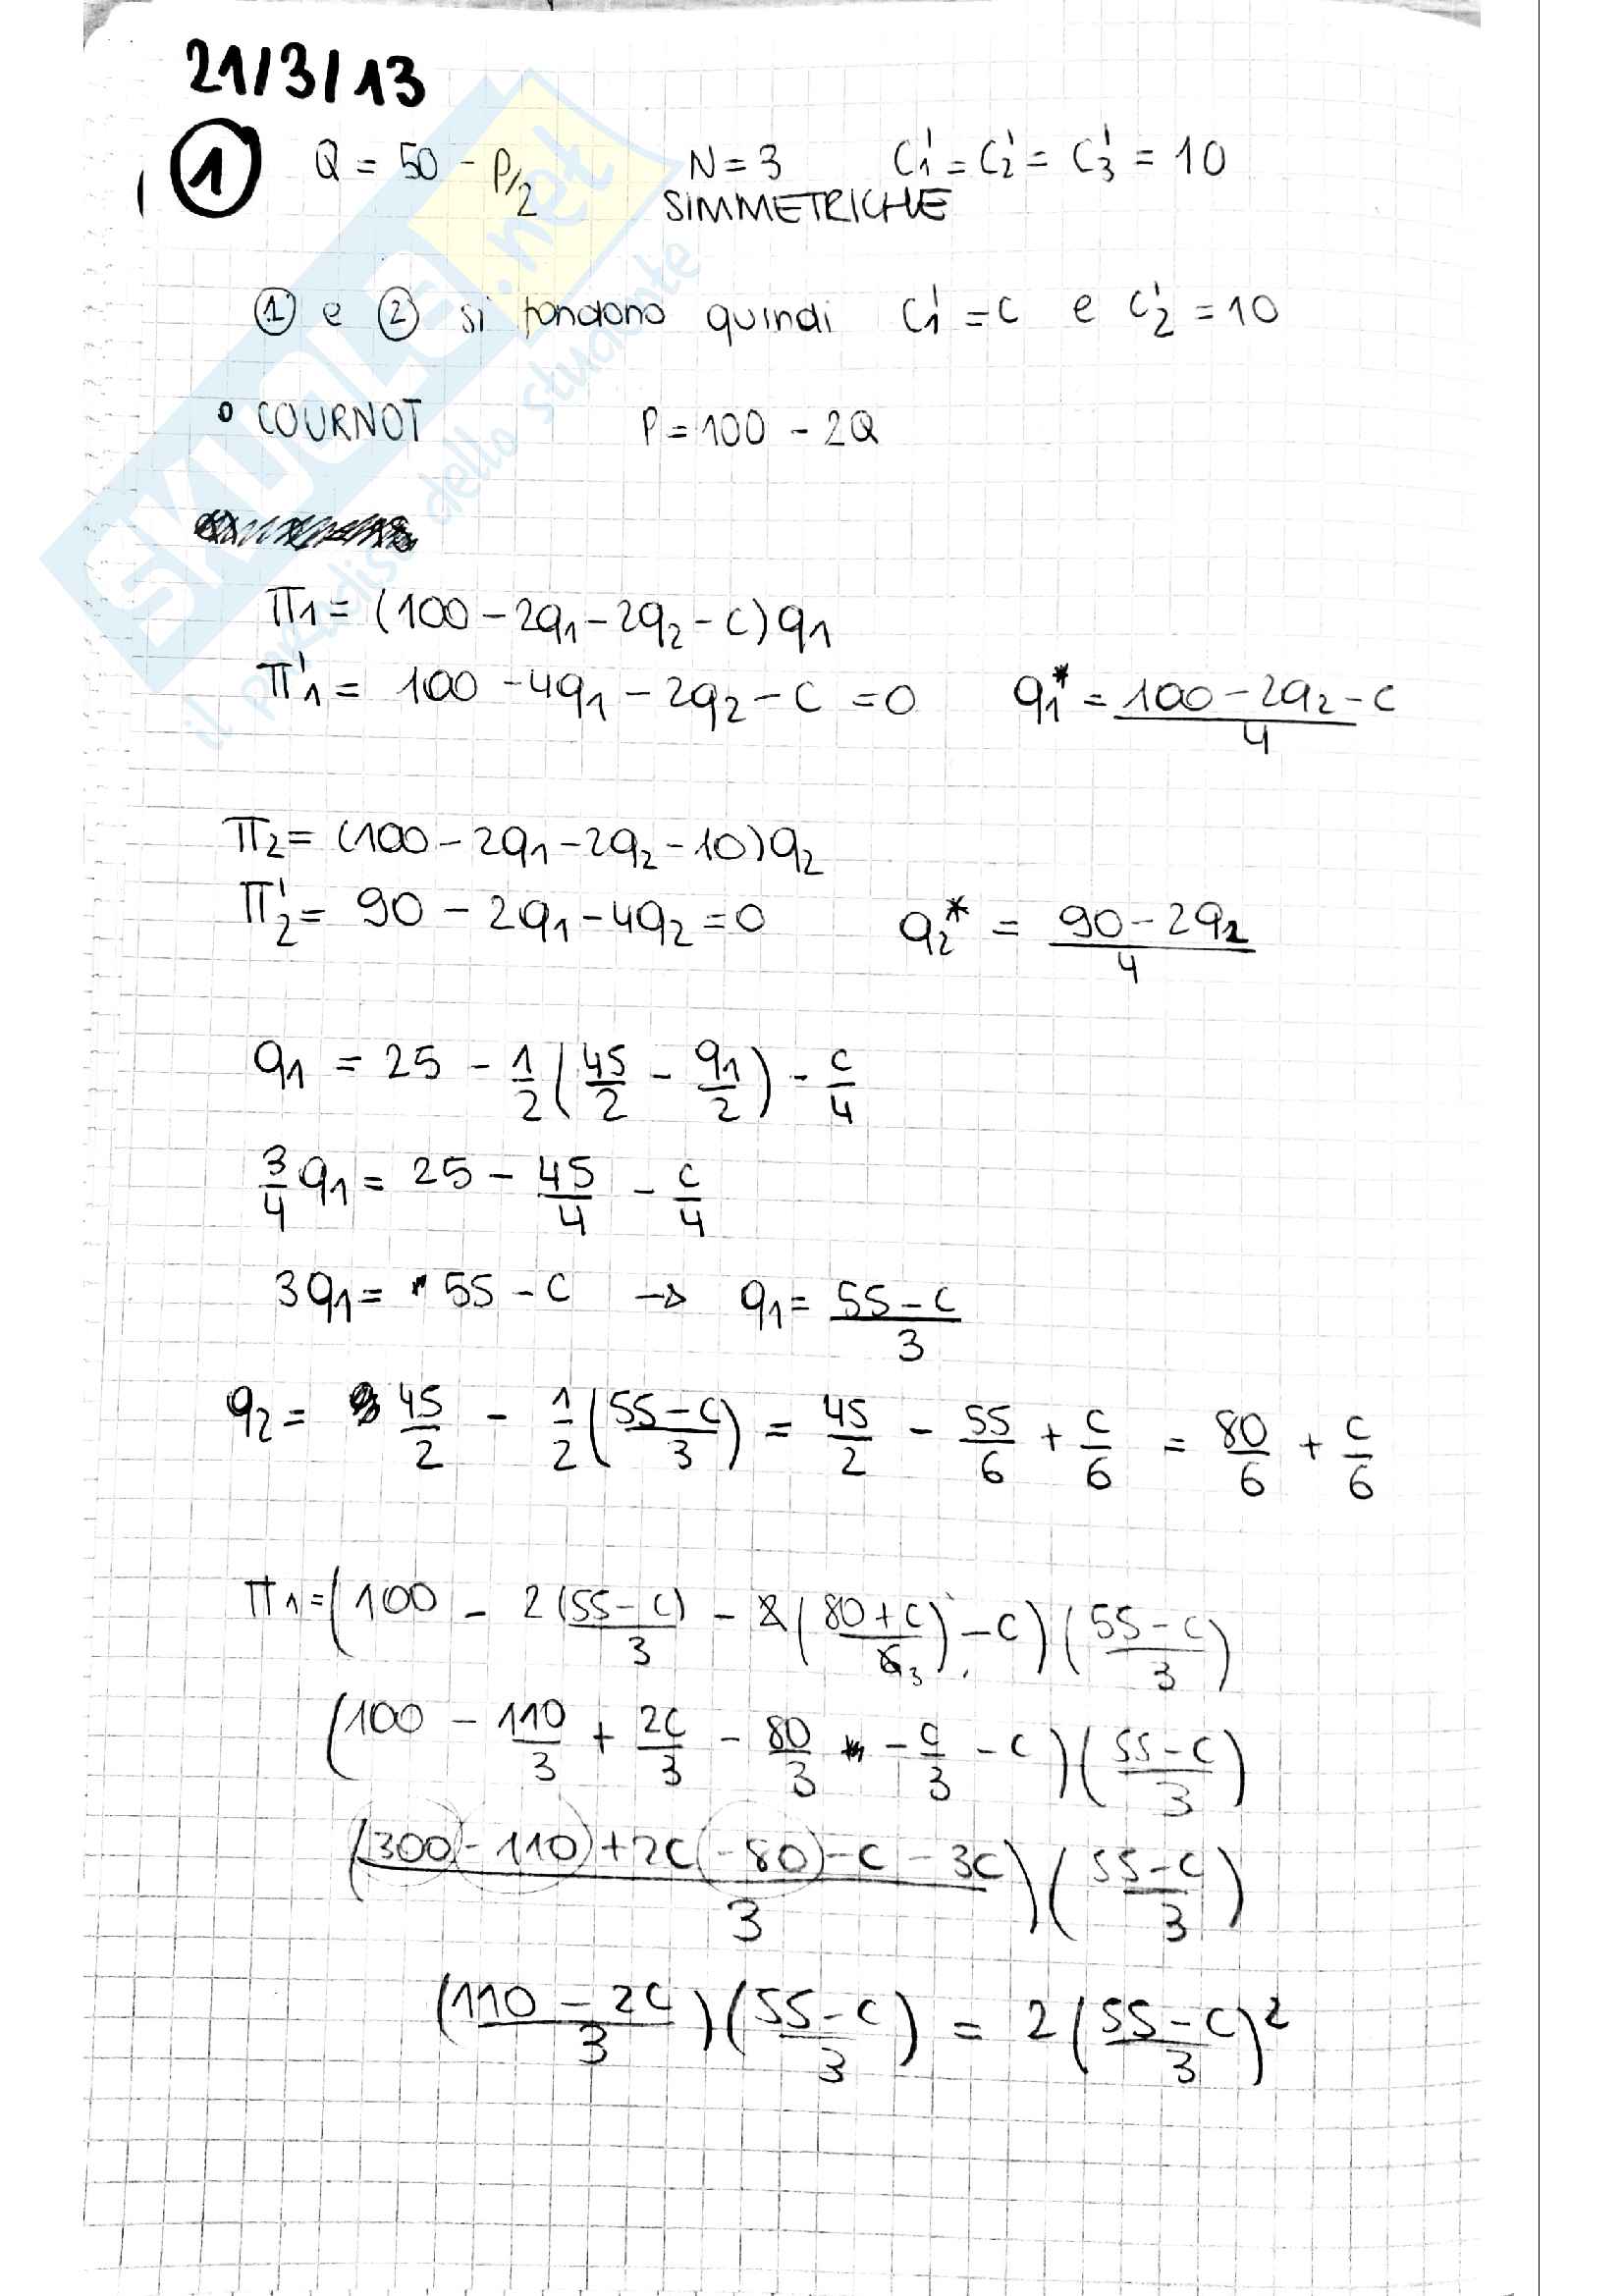 21/3/13
① Q = 50 - P/2 N = 3 C'₁ = C'₂ = C'₃ = 10
SIMMETRICHE
① e ② si fondono quindi C'₁ = C e C'₂ = 10
• COURNOT P = 100 - 2Q
π₁ = (100 - 2q₁ - 2q₂ - C) q₁
π'₁ = 100 - 4q₁ - 2q₂ - C = 0 q₁* = (100 - 2q₂ - C)/4
π₂ = (100 - 2q₁ - 2q₂ - 10) q₂
π'₂ = 90 - 2q₁ - 4q₂ = 0 q₂* = (90 - 2q₁)/4
q₁ = 25 - 1/2 (45/2 - q₁/2) - C/4
3/4 q₁ = 25 - 45/4 - C/4
3q₁ = 55 - C → q₁ = (55 - C)/3
q₂ = 45/2 - 1/2 ((55 - C)/3) = 45/2 - 55/6 + C/6 = 80/6 + C/6
π₁ = (100 - 2(55 - C)/3 - 2((80 + C)/6 3) - C) ((55 - C)/3)
(100 - 110/3 + 2C/3 - 80/3 - C/3 - C) ((55 - C)/3)
((300 - 110 + 2C - 80 - C - 3C)/3) ((55 - C)/3)
((110 - 2C)/3) ((55 - C)/3) = 2 ((55 - C)/3)²
SKUOLA.net
il paradiso dello studente